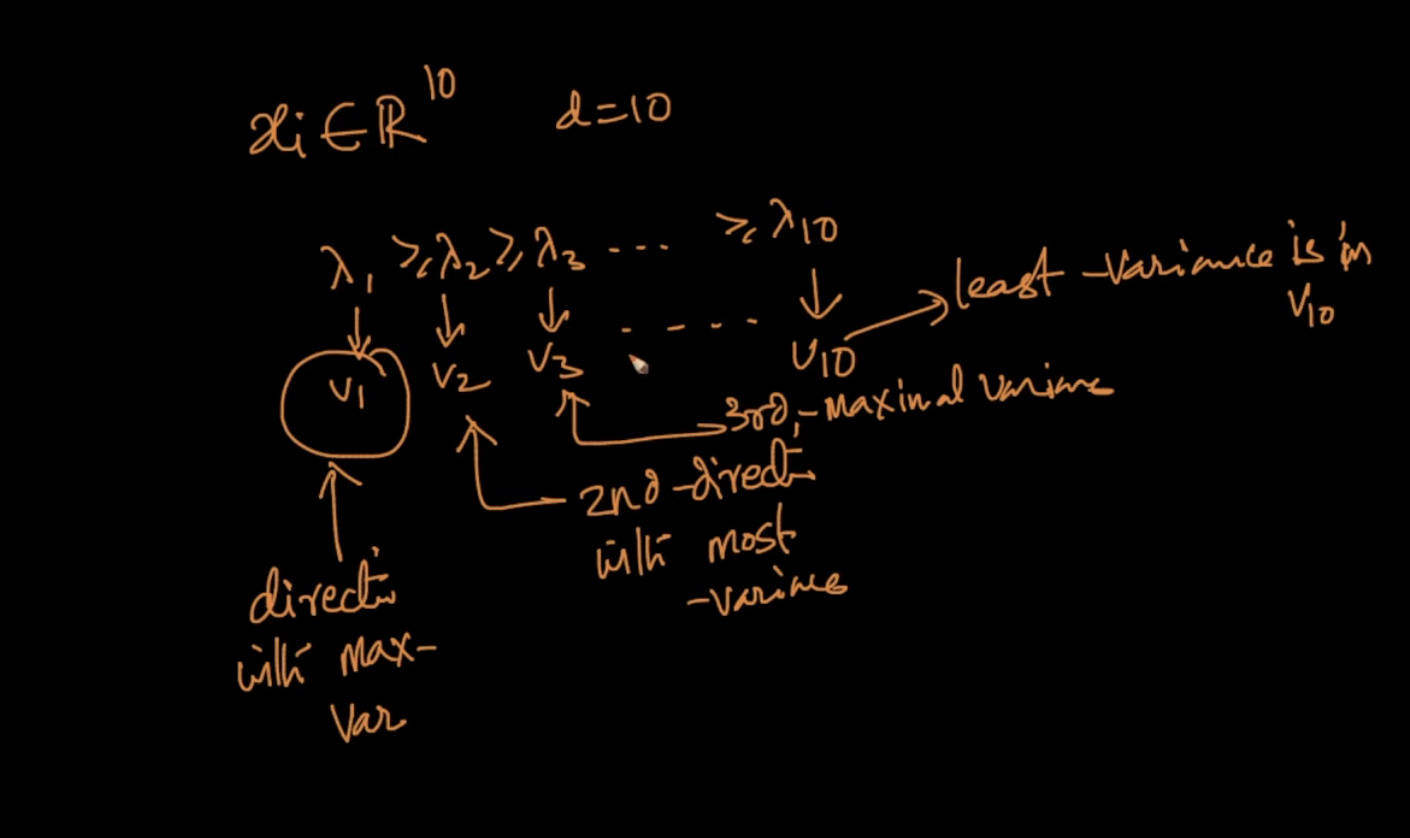 xi ∈ ℝ^10 d=10
λ1 ≥ λ2 ≥ λ3 ... ≥ λ10
↓ ↓ ↓ ↓
v1 v2 v3 - - - - v10 → least-variance is in v10
3rd,-maximal variance
2nd-direction
with most
-variance
direction
with max-
var